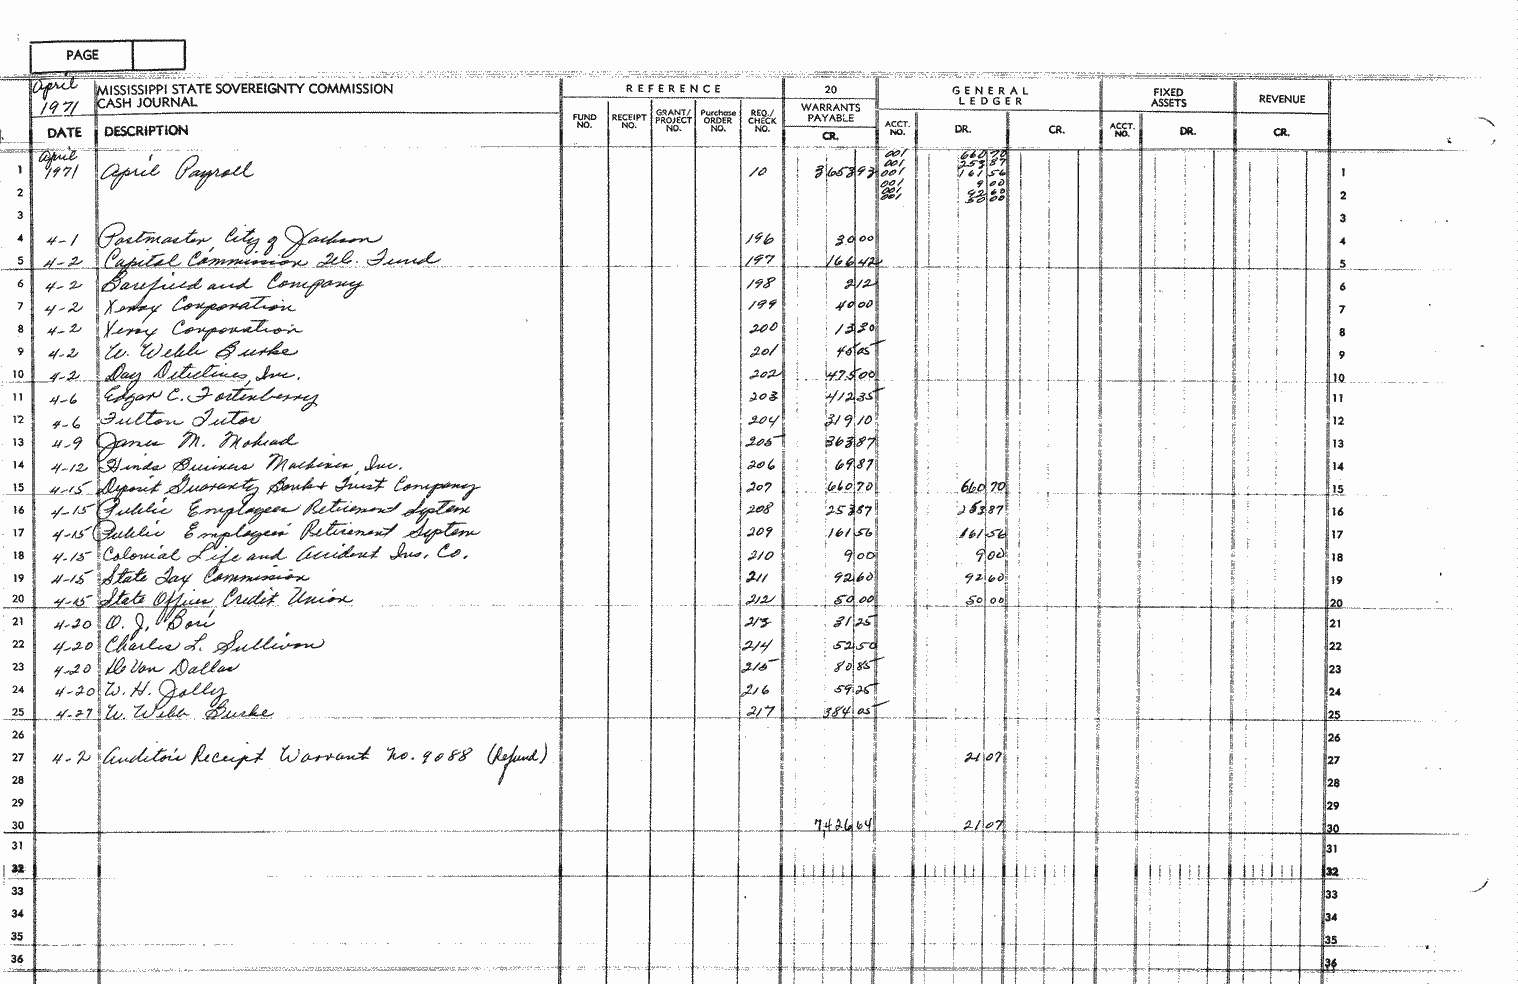 PAGE
April 1971 MISSISSIPPI STATE SOVEREIGNTY COMMISSION
CASH JOURNAL
REFERENCE 20 GENERAL LEDGER FIXED ASSETS REVENUE
DATE DESCRIPTION FUND NO. RECEIPT NO. GRANT/PROJECT NO. Purchase ORDER NO. REQ./CHECK NO. WARRANTS PAYABLE CR. ACCT. NO. DR. CR. ACCT. NO. DR. CR.
001 660 70
001 253 87
1 April 1971 April Payroll 10 3653 93 001 161 56 1
001 9 00
001 92 60
2 001 50 00 2
3 3
4 4-1 Postmaster, City of Jackson 196 30 00 4
5 4-2 Capitol Commission Tel. Fund 197 166 42 5
6 4-2 Barefield and Company 198 2 12 6
7 4-2 Xerox Corporation 199 40 00 7
8 4-2 Xerox Corporation 200 13 30 8
9 4-2 W. Webb Burke 201 45 05 9
10 4-2 Day Detectives, Inc. 202 475 00 10
11 4-6 Edgar C. Fortenberry 203 412 35 11
12 4-6 Fulton Tutor 204 319 10 12
13 4-9 James M. Mohead 205 363 87 13
14 4-12 Hinds Business Machines, Inc. 206 69 87 14
15 4-15 Deposit Guaranty Bank & Trust Company 207 660 70 660 70 15
16 4-15 Public Employees Retirement System 208 253 87 253 87 16
17 4-15 Public Employees' Retirement System 209 161 56 161 56 17
18 4-15 Colonial Life and Accident Ins. Co. 210 9 00 9 00 18
19 4-15 State Tax Commission 211 92 60 92 60 19
20 4-15 State Offices Credit Union 212 50 00 50 00 20
21 4-20 O. J. Bori 213 31 25 21
22 4-20 Charles L. Sullivan 214 52 50 22
23 4-20 DeVan Dallas 215 80 85 23
24 4-20 W. H. Jolly 216 59 25 24
25 4-27 W. Webb Burke 217 384 05 25
26 26
27 4-2 Auditor's Receipt Warrant No. 9088 (Refund) 21 07 27
28 28
29 29
30 7,426 64 21 07 30
31 31
32 32
33 33
34 34
35 35
36 36